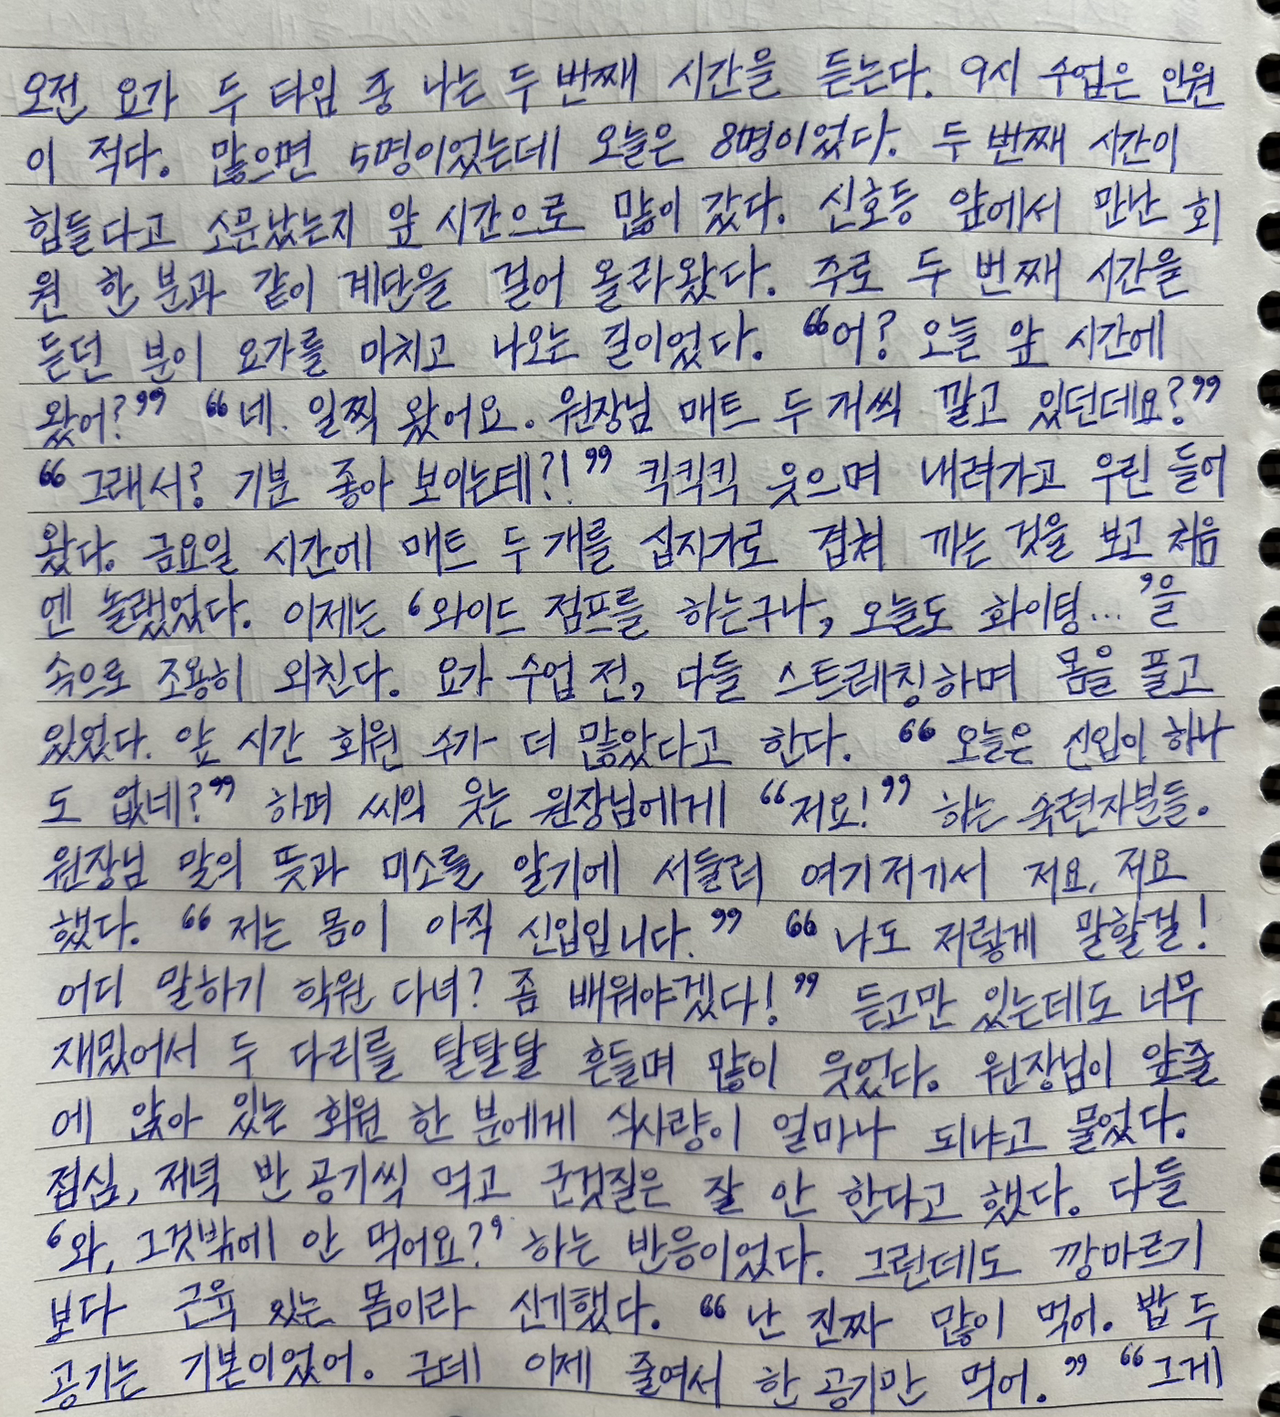 오전 요가 두 타임 중 나는 두 번째 시간을 듣는다. 9시 수업은 인원
이 적다. 많으면 5명이었는데 오늘은 8명이었다. 두 번째 시간이
힘들다고 소문났는지 앞 시간으로 많이 갔다. 신호등 앞에서 만난 회
원 한 분과 같이 계단을 걸어 올라왔다. 주로 두 번째 시간을
듣던 분이 요가를 마치고 나오는 길이었다. "어? 오늘 앞 시간에
왔어?" "네. 일찍 왔어요. 원장님 매트 두 개씩 깔고 있던데요?"
"그래서? 기분 좋아 보이는데?!" 킥킥킥 웃으며 내려가고 우린 들어
왔다. 금요일 시간에 매트 두 개를 십자가로 겹쳐 까는 것을 보고 처음
엔 놀랬었다. 이제는 '와이드 점프를 하는구나, 오늘도 화이팅...'을
속으로 조용히 외친다. 요가 수업 전, 다들 스트레칭하며 몸을 풀고
있었다. 앞 시간 회원 수가 더 많았다고 한다. "오늘은 신입이 하나
도 없네?" 하며 씨익 웃는 원장님에게 "저요!" 하는 숙련자분들.
원장님 말의 뜻과 미소를 알기에 서둘러 여기저기서 저요, 저요
했다. "저는 몸이 아직 신입입니다." "나도 저렇게 말할걸!
어디 말하기 학원 다녀? 좀 배워야겠다!" 듣고만 있는데도 너무
재밌어서 두 다리를 탈탈탈 흔들며 많이 웃었다. 원장님이 앞줄
에 앉아 있는 회원 한 분에게 식사량이 얼마나 되냐고 물었다.
점심, 저녁 반 공기씩 먹고 군것질은 잘 안 한다고 했다. 다들
'와, 그것밖에 안 먹어요?' 하는 반응이었다. 그런데도 깡마르기
보다 근육 있는 몸이라 신기했다. "난 진짜 많이 먹어. 밥 두
공기는 기본이었어. 근데 이제 줄여서 한 공기만 먹어." "그게